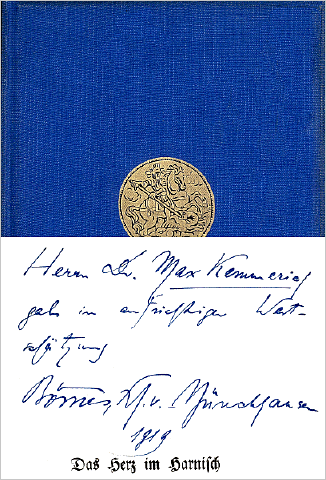 Herrn Dr. Max Kemmerich
gab in aufrichtiger Wert-
schätzung
Börries, Frh. v. Münchhausen
1919
Das Herz im Harnisch